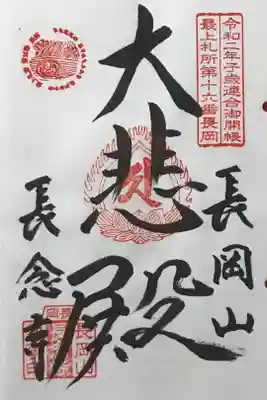 令和二年子歳連合御開帳
最上札所第十六番長岡
長岡山
大悲殿
長念寺